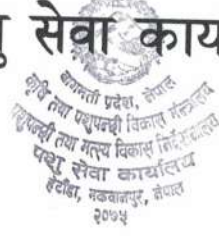 सेवा
बागमती प्रदेश, नेपाल
कृषि तथा पशुपन्छी विकास मन्त्रालय
पशुपन्छी तथा मत्स्य विकास निर्देशनालय
पशु सेवा कार्यालय
हेटौंडा, मकवानपुर, नेपाल
२०७५